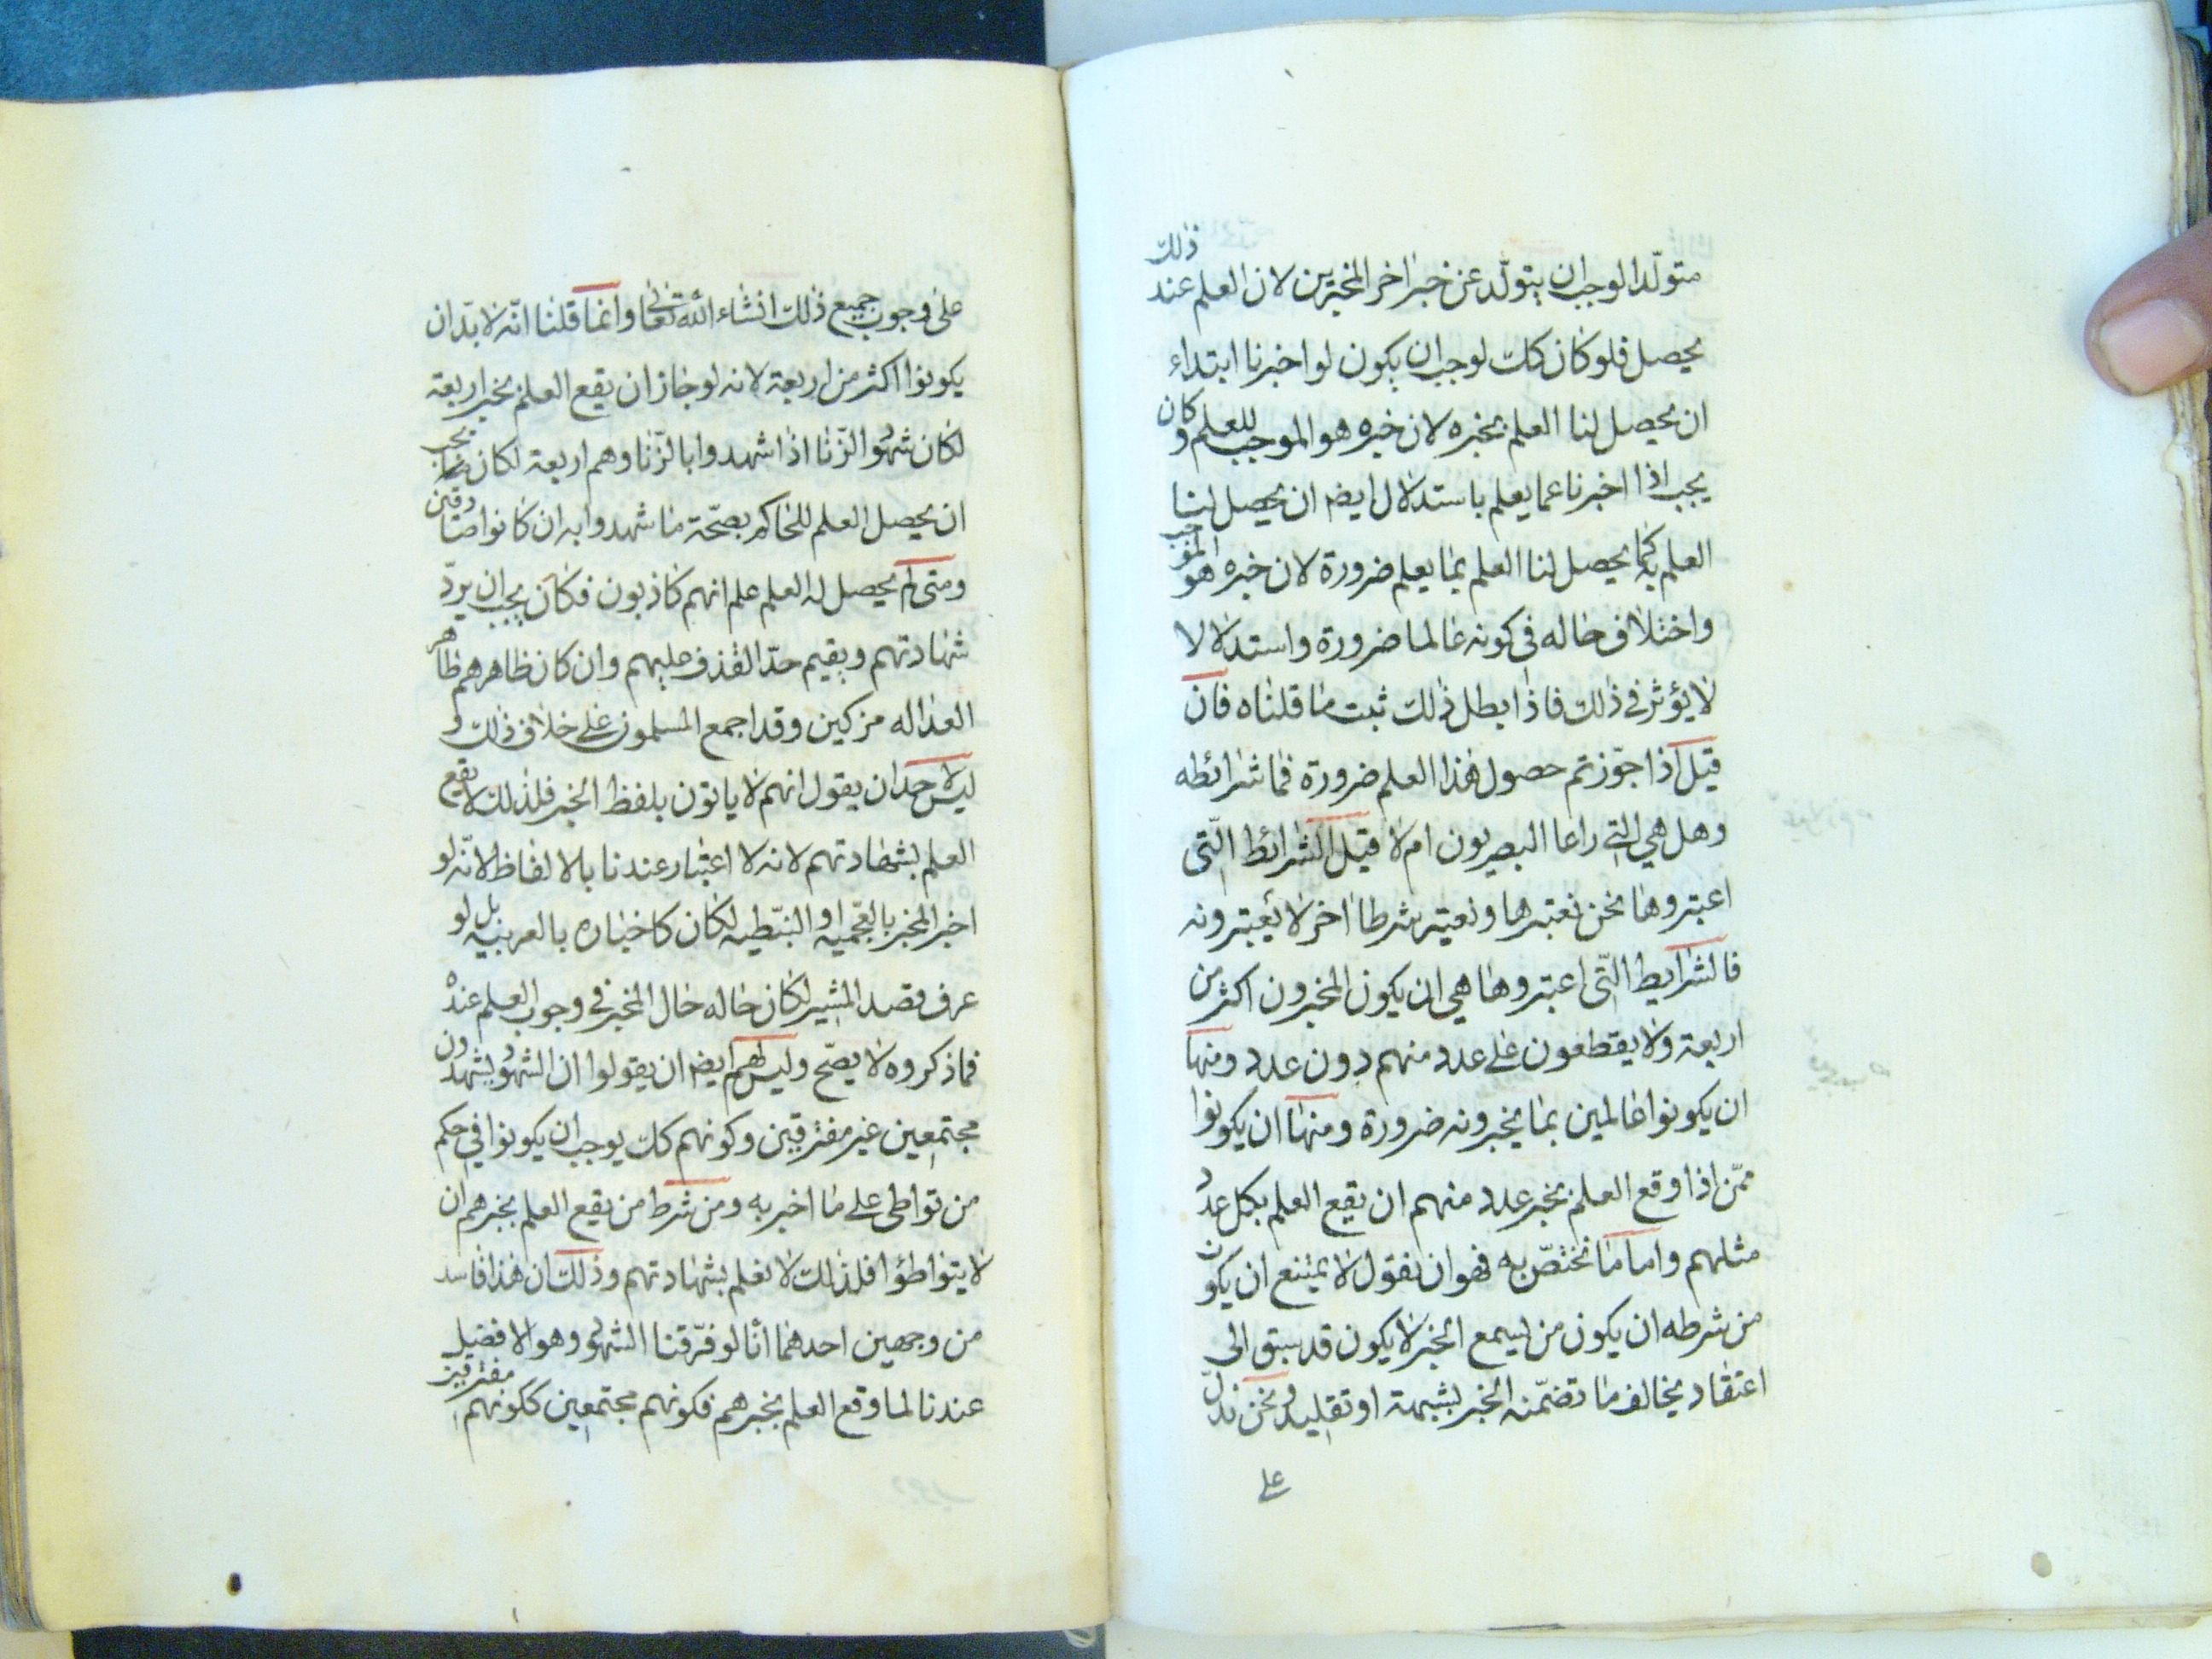 متولّدا لوجب ان يتولّد عن خبر اخر المخبرين لان العلم عند ذلك
يحصل فلو كان كك لوجب ان يكون لو اخبرنا ابتداء
ان يحصل لنا العلم بخبره لان خبره هو الموجب للعلم و كان
يجب اذا اخبرنا عما يعلم باستدلال ايضا ان يحصل لنا
العلم به كما يحصل لنا العلم بما يعلم ضرورة لان خبره هو الموجب
واختلاف حاله في كونه عالما ضرورة واستدلالا لا
لا يؤثر في ذلك فاذا بطل ذلك ثبت ما قلناه فان
قيل اذا جوّزتم حصول هذا العلم ضرورة فما شرائطه
وهل هي التي راعا البصريون ام لا قيل الشرائط الّتى
اعتبروها نحن نعتبرها ونعتبر شرطا اخر لا يعتبرونه
فالشرايط الّتى اعتبروها هي ان يكون المخبرون اكثر من
اربعة ولا يقطعون على عدد منهم دون عدد ومنها
ان يكونوا عالمين بما يخبرونه ضرورة ومنها ان يكونوا
ممّن اذا وقع العلم بخبر عدد منهم ان يقع العلم بكل عدد
مثلهم واما ما نختصّ به فهو ان نقول لا يمتنع ان يكون
من شرطه ان يكون من يسمع الخبر لا يكون قد سبق الى
اعتقاد يخالف ما تضمّنه الخبر بشبهة او تقليد ونحن ندلّ
على
على وجوب جميع ذلك انشاء الله تعالى وانما قلنا انّه لا بدّ ان
يكونوا اكثر من اربعة لانه لو جاز ان يقع العلم بخبر اربعة
لكان شهود الزّنا اذا شهدوا بالزّنا وهم اربعة لكان يجب
ان يحصل العلم للحاكم بصحّة ما شهدوا به ان كانوا صادقين
ومتى لم يحصل له العلم علم انهم كاذبون فكان يجب ان يردّ
شهادتهم ويقيم حدّ القذف عليهم وان كان ظاهرهم ظاهر
العداله مزكين وقد اجمع المسلمون على خلاف ذلك و
ليس لاحد ان يقول انهم لا ياتون بلفظ الخبر فلذلك لا يقع
العلم بشهادتهم لانه لا اعتبار عندنا بالالفاظ لانّه لو
اخبر المخبر بالعجميه او النبّطيه لكان كاخباره بالعربيه بل لو
عرف قصد المشير لكان حاله حال المخبر في وجوب العلم عنده
فما ذكروه لا يصحّ وليس لهم ايضا ان يقولوا ان الشهود يشهدون
مجتمعين غير مفترقين وكونهم كك يوجب ان يكونوا في حكم
من تواطى على ما اخبر به ومن شرط من يقع العلم بخبرهم ان
لا يتواطؤا فلذلك لا نعلم بشهادتهم وذلك ان هذا فاسد
من وجهين احدهما انّا لو فرّقنا الشهود وهو الافضل
عندنا لما وقع العلم بخبرهم فكونهم مجتمعين ككونهم مفترقين